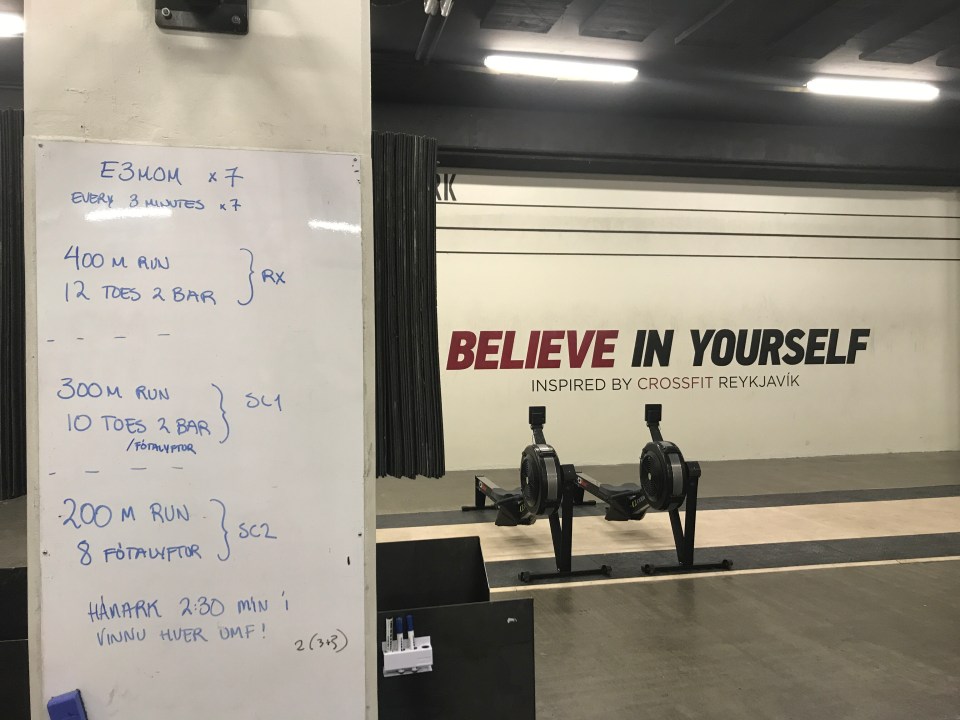 E3MOM x7
EVERY 3 MINUTES x7
400 M RUN
12 TOES 2 BAR
RX
300 M RUN
10 TOES 2 BAR
/FÓTALYFTOR
SC1
200 M RUN
8 FÓTALYFTOR
SC2
HÁMARK 2:30 MÍN Í
VINNU HVER UMF!
2(3+3)
RK
BELIEVE IN YOURSELF
INSPIRED BY CROSSFIT REYKJAVÍK